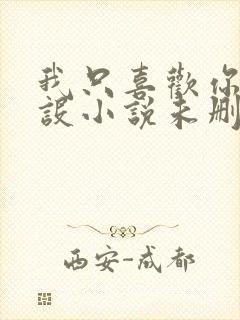 我只喜歡你
設小說未刪
西安-成都